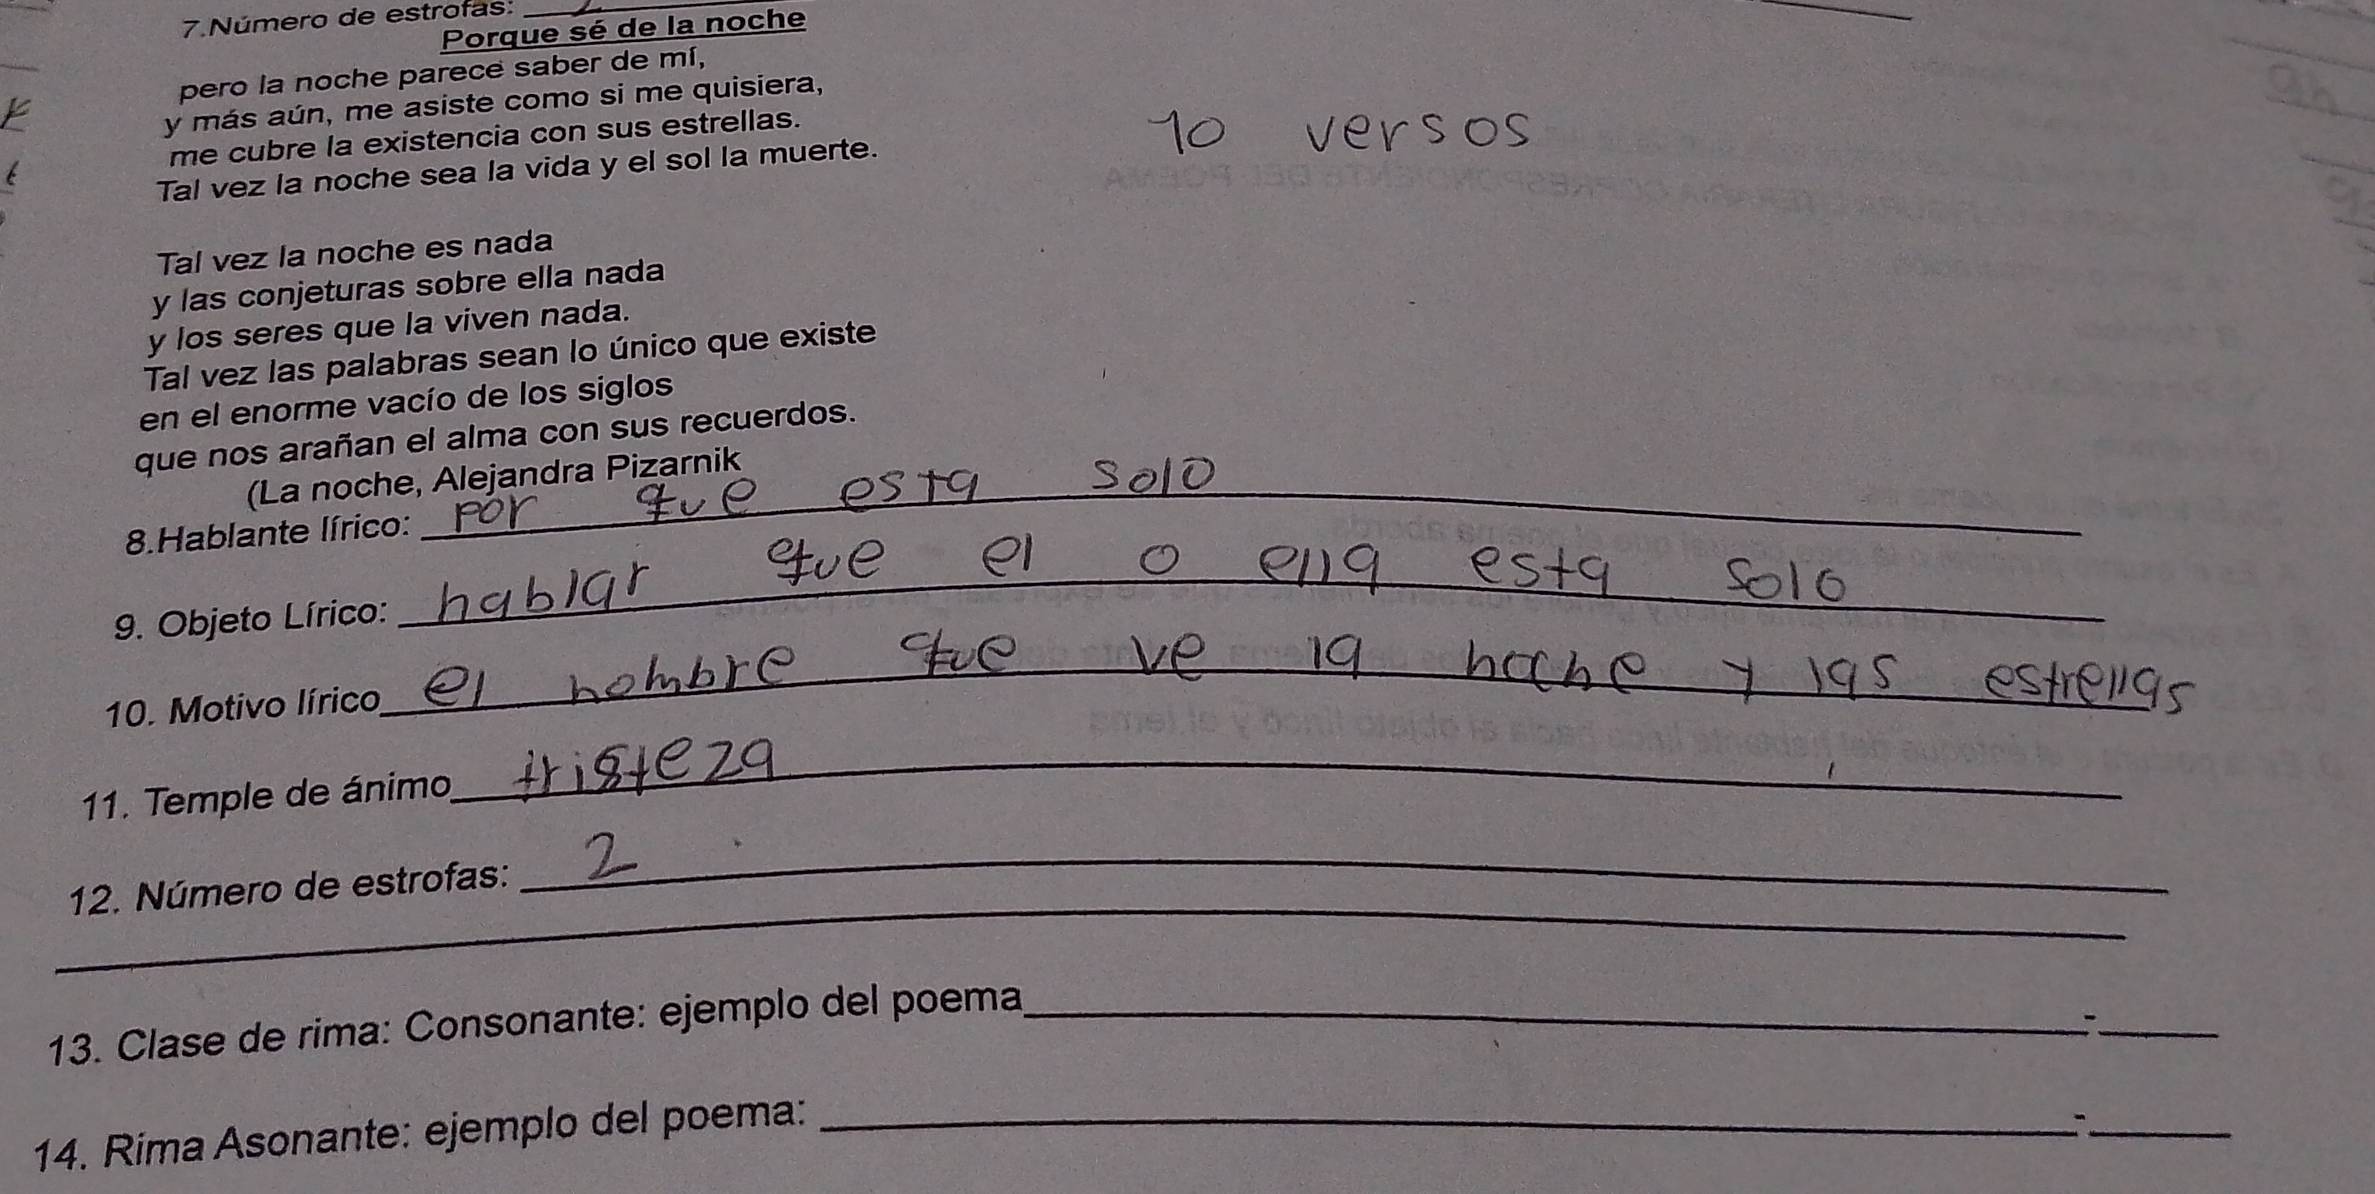 7.Número de estrofas:
Porque sé de la noche
pero la noche parece saber de mí,
y más aún, me asiste como si me quisiera,
me cubre la existencia con sus estrellas.
Tal vez la noche sea la vida y el sol la muerte.
10 versos
Tal vez la noche es nada
y las conjeturas sobre ella nada
y los seres que la viven nada.
Tal vez las palabras sean lo único que existe
en el enorme vacío de los siglos
que nos arañan el alma con sus recuerdos.
(La noche, Alejandra Pizarnik
8.Hablante lírico: por que esta solo
9. Objeto Lírico: hablar que el o ella esta solo
10. Motivo lírico el hombre que ve la noche y las estrellas
11. Temple de ánimo tristeza
12. Número de estrofas: 2
13. Clase de rima: Consonante: ejemplo del poema - 
14. Rima Asonante: ejemplo del poema: -